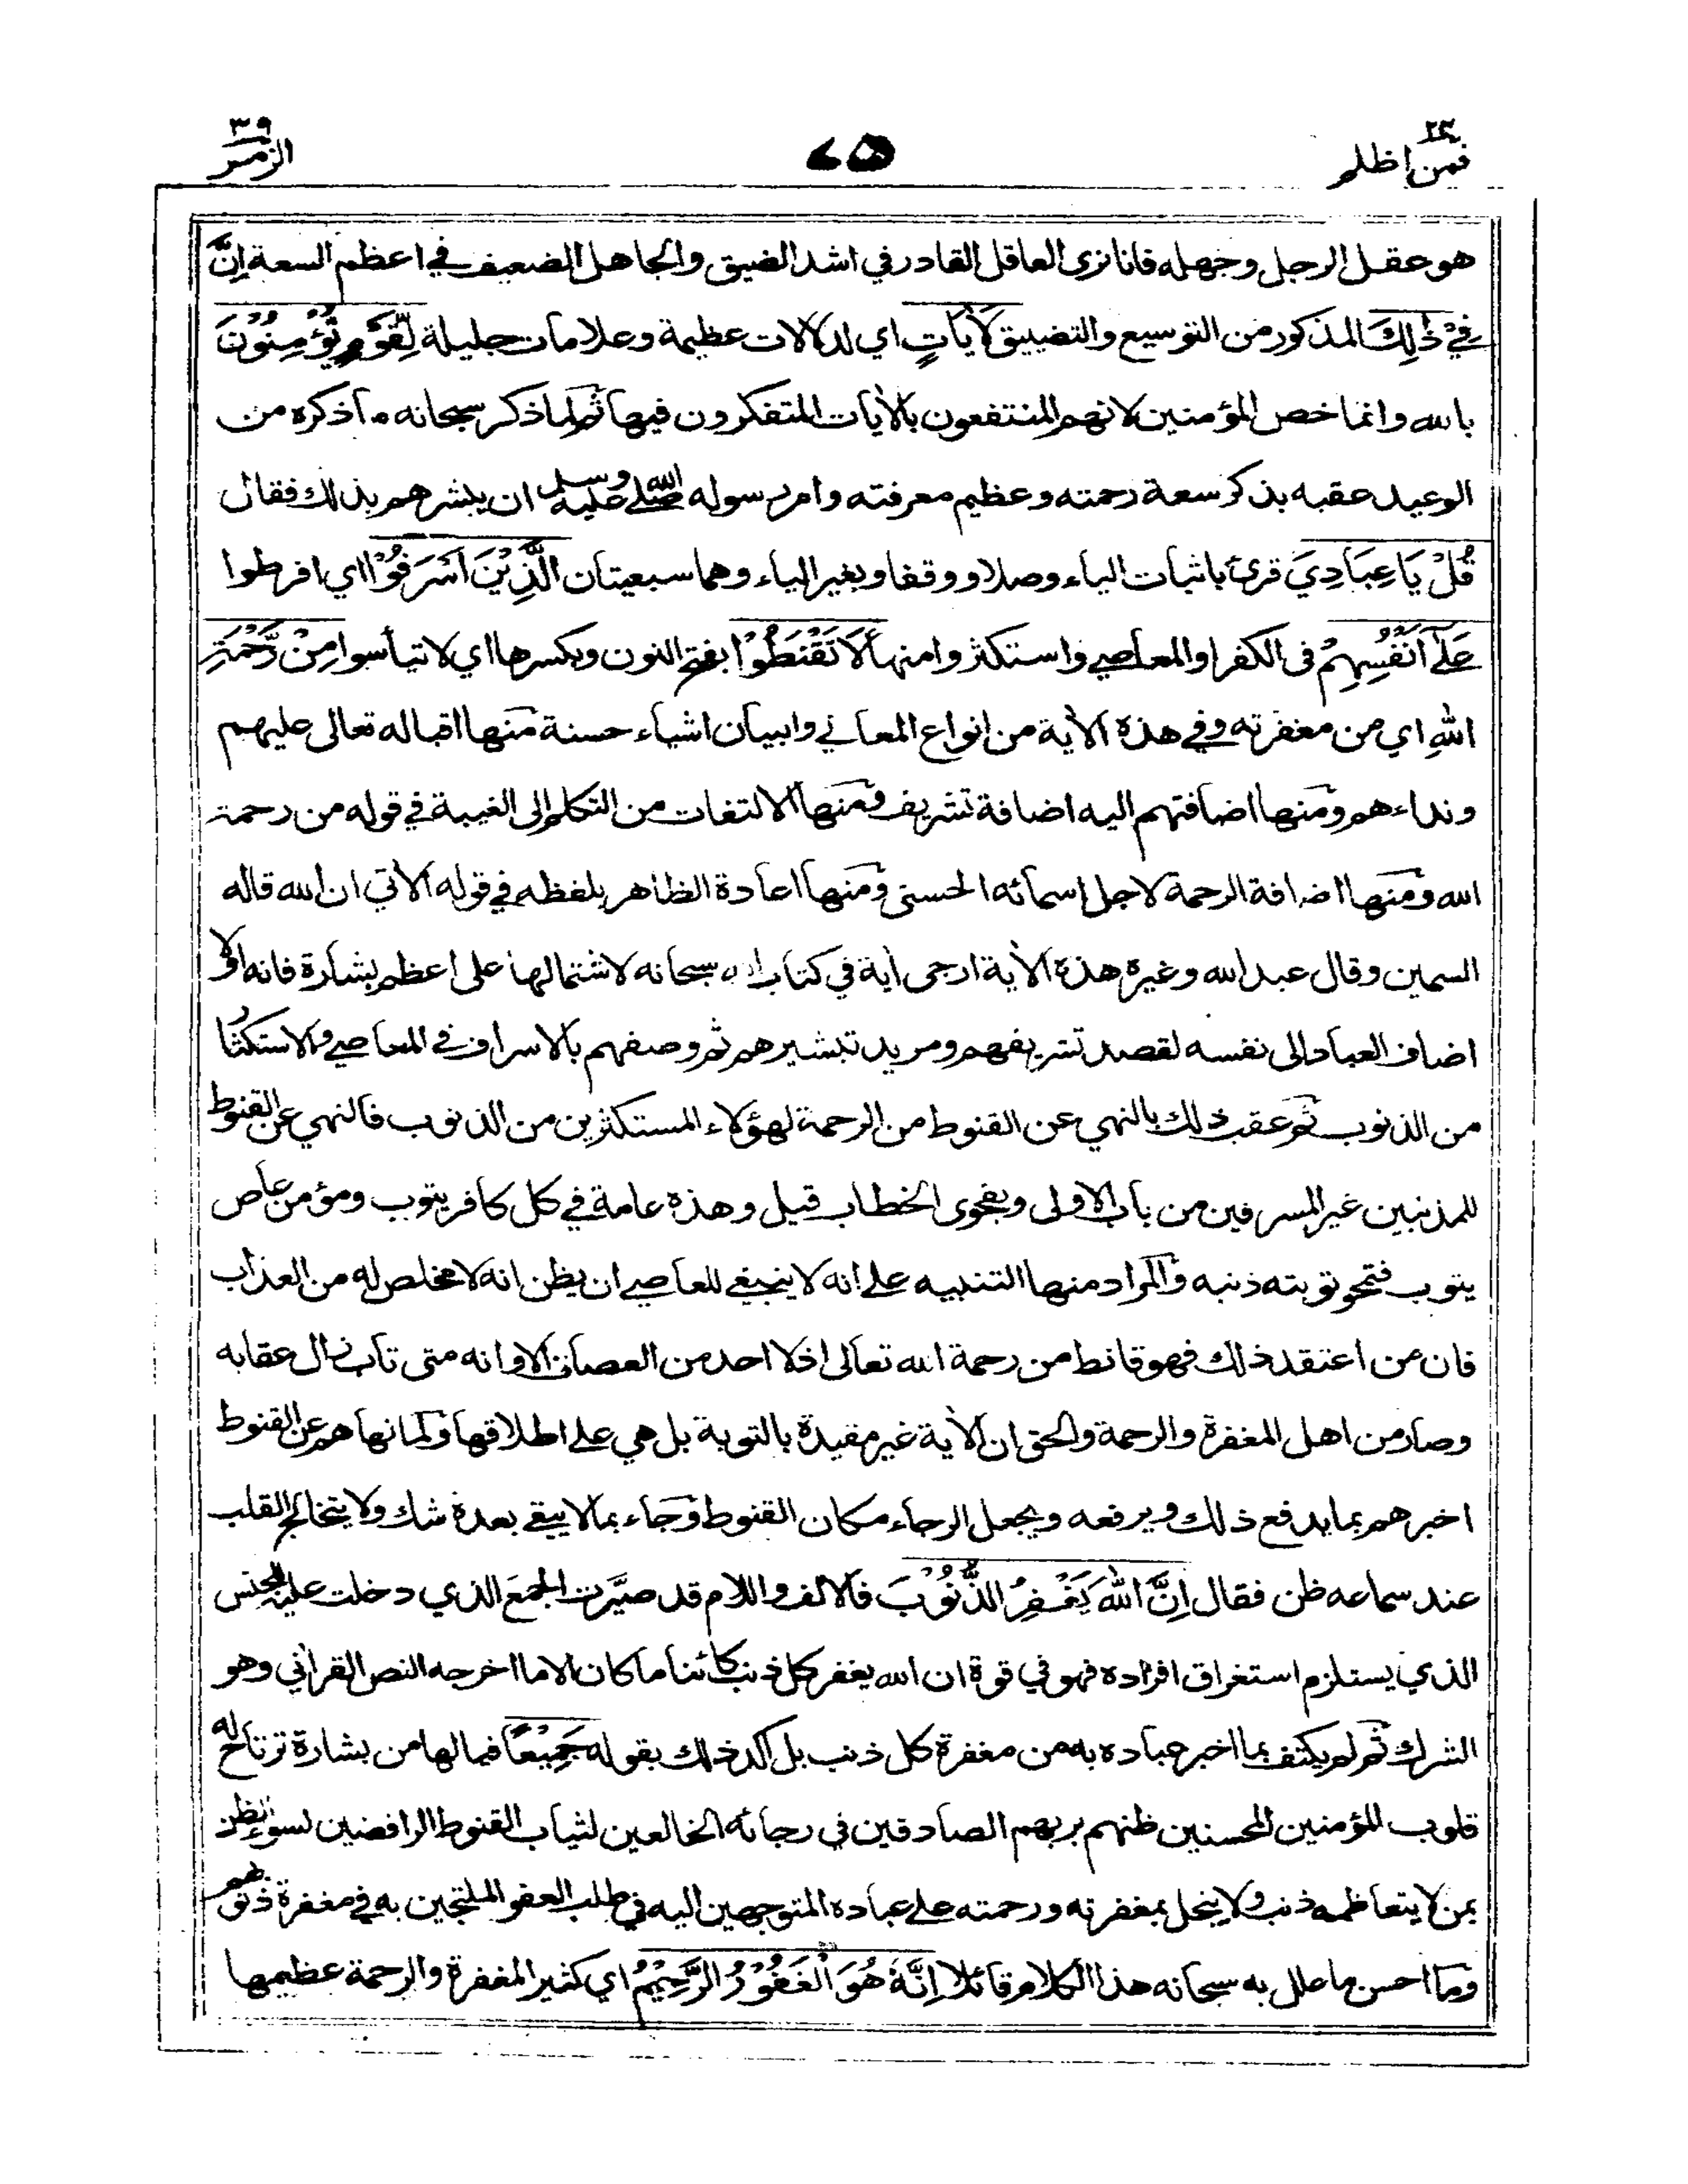 فمن اظلم ٢٤
٧٥
الزمر ٣٩
هو عقل الرجل وجهله فانا نرى العاقل القادر في اشد الضيق والجاهل الضعيف في اعظم السعة اِنَّ
فِيْ ذٰلِكَ المذكور من التوسيع والتضييق لَاٰيَاتٍ اي لدلالات عظيمة وعلامات جليلة لِّقَوْمٍ يُّؤْمِنُوْنَ
بالله وانما خص المؤمنين لانهم المنتفعون بالاٰيات المتفكرون فيها ثم لما ذكر سبحانه ما ذكره من
الوعيد عقبه بذكر سعة رحمته وعظيم معرفته وامر رسوله صلى الله عليه وسلم ان يبشرهم بذلك فقال
قُلْ يَا عِبَادِيَ قرئ باثبات الياء وصلا ووقفا وبغير الياء وهما سبعيتان الَّذِيْنَ اَسْرَفُوْا اي افرطوا
عَلٰٓى اَنْفُسِهِمْ فى الكفر او المعاصي واستكثروا منها لَا تَقْنَطُوْا بفتح النون وبكسرها اي لا تيأسوا مِنْ رَّحْمَةِ
اللّٰهِ اي من مغفرته وفي هذه الاٰية من انواع المعاني وابيان اشياء حسنة منها اقباله تعالى عليهم
ونداءهم ومنها اضافتهم اليه اضافة تشريف ومنها الالتفات من التكلم الى الغيبة في قوله من رحمة
الله ومنها اضافة الرحمة لاجل اسمائه الحسنى ومنها اعادة الظاهر بلفظه في قوله الاٰتي ان الله قاله
السمين وقال عبد الله وغيره هذه الاٰية ارجى اٰية في كتاب الله سبحانه لاشتمالها على اعظم بشارة فانه اولا
اضاف العباد الى نفسه لقصد تشريفهم ومريد تبشيرهم ثم وصفهم بالاسراف في المعاصي والاستكثار
من الذنوب ثم عقب ذلك بالنهي عن القنوط من الرحمة لهؤلاء المستكثرين من الذنوب فالنهي عن القنوط
للمذنبين غير المسرفين من باب الاولى وبفحوى الخطاب قيل وهذه عامة في كل كافر يتوب ومؤمن عاص
يتوب فتمحو توبته ذنبه والمراد منها التنبيه على انه لا ينبغي للعاصي ان يظن انه لا مخلص له من العذاب
فان من اعتقد ذلك فهو قانط من رحمة الله تعالى اذ لا احد من العصاة الا وانه متى تاب زال عقابه
وصار من اهل المغفرة والرحمة والحق ان الاٰية غير مقيدة بالتوبة بل هي على اطلاقها وكما نهاهم عن القنوط
اخبرهم بما يدفع ذلك ويرفعه ويجعل الرجاء مكان القنوط وجاء بما لا يبقي بعده شك ولا يتخالج القلب
عند سماعه ظن فقال اِنَّ اللّٰهَ يَغْفِرُ الذُّنُوْبَ فالالف واللام قد صيَّرت الجمع الذي دخلت عليه للجنس
الذي يستلزم استغراق افراده فهو في قوة ان الله يغفر كل ذنب كائنا ما كان الا ما اخرجه النص القراٰني وهو
الشرك ثم لم يكتف بما اخبر عباده به من مغفرة كل ذنب بل اكد ذلك بقوله جَمِيْعًا فيا لها من بشارة ترتاح له
قلوب المؤمنين المحسنين ظنهم بربهم الصادقين في رجائه الخالعين لثياب القنوط الرافضين لسوء الظن
بمن لا يتعاظمه ذنب ولا يبخل بمغفرته ورحمته على عباده المتوجهين اليه في طلب العفو الملتجين به في مغفرة ذنوبهم
وما احسن ما علل به سبحانه هذا الكلام قائلا اِنَّهٗ هُوَ الْغَفُوْرُ الرَّحِيْمُ اي كثير المغفرة والرحمة عظيمها